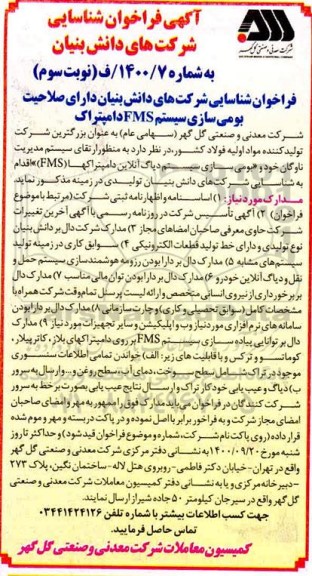 آگهی فراخوان شناسایی
شرکت های دانش بنیان
به شماره ۱۴۰۰/۷/ف (نوبت سوم)
شرکت معدنی و صنعتی گل گهر
فراخوان شناسایی شرکت های دانش بنیان دارای صلاحیت
بومی سازی سیستم FMS دامپتراک
شرکت معدنی و صنعتی گل گهر (سهامی عام) به عنوان بزرگترین شرکت
تولیدکننده مواد اولیه فولاد کشور، در نظر دارد به منظور ارتقای سیستم مدیریت
ناوگان خود و بومی سازی سیستم دیاگ آنلاین دامپتراکها (FMS)» اقدام
به شناسایی شرکت های دانش بنیان تولیدی در زمینه مذکور نماید.
مدارک مورد نیاز: ۱) اساسنامه و اظهارنامه ثبتی شرکت (مرتبط با موضوع
فراخوان) ۲) آگهی تأسیس شرکت در روزنامه رسمی با آگهی آخرین تغییرات
شرکت حاوی معرفی صاحبان امضاهای مجاز ۳) مدارک شرکت دال بر دانش بنیان
نوع تولیدی و دارای خط تولید قطعات الکترونیکی ۴) سوابق کاری در زمینه تولید
سیستم های مشابه ۵) مدارک دال بر دارا بودن رزومه هوشمندسازی سیستم حمل و
نقل و دیاگ آنلاین خودرو ۶) مدارک دال بر دارا بودن توان مالی مناسب ۷) مدارک دال
بر برخورداری از نیروی انسانی متخصص و ارائه لیست پرسنل تمام وقت شرکت همراه با
مشخصات کامل (سوابق تحصیلی و کاری) و چارت سازمانی ۸) مدارک دال بر دارا بودن
سامانه های نرم افزاری مورد نیاز وب و اپلیکیشن و سایر تجهیزات مورد نیاز ۹) مدارک
دال بر توانایی پیاده سازی سیستم FMS بر روی دامپتراکهای بلاز، کاترپیلار،
کوماتسو و ترکس و با قابلیت های زیر: الف) خواندن تمامی اطلاعات سنسوری
موجود در تراک شامل سطح سوخت، دمای آب، سطح روغن و... و ارسال به سرور
ب) دیاگ و عیب یابی خودکار تراک و ارسال نتایج عیب یابی بصورت بر خط به سرور
شرکت کنندگان در فراخوان می باید مدارک فوق را ممهور به مهر و امضای صاحبان
امضای مجاز شرکت و به فراخور برابر با اصل نموده و در پاکت دربسته و مهر و موم شده
قرار داده (روی پاکت نام شرکت، شماره و موضوع فراخوان قید شود) و حداکثر تا روز
شنبه مورخ ۱۴۰۰/۹/۲۰ به نشانی دفتر مرکزی شرکت معدنی و صنعتی گل گهر
واقع در تهران-خیابان دکتر فاطمی-روبروی هتل لاله-ساختمان نگین، پلاک ۲۷۳
-دبیرخانه مرکزی و یا به نشانی دفتر کمیسیون معاملات شرکت معدنی و صنعتی
گل گهر واقع در سیرجان کیلومتر ۵۰ جاده شیراز ارسال نمایند.
جهت کسب اطلاعات بیشتر با شماره تلفن ۰۳۴۴۱۴۲۴۱۲۶
تماس حاصل فرمایید.
کمیسیون معاملات شرکت معدنی و صنعتی گل گهر